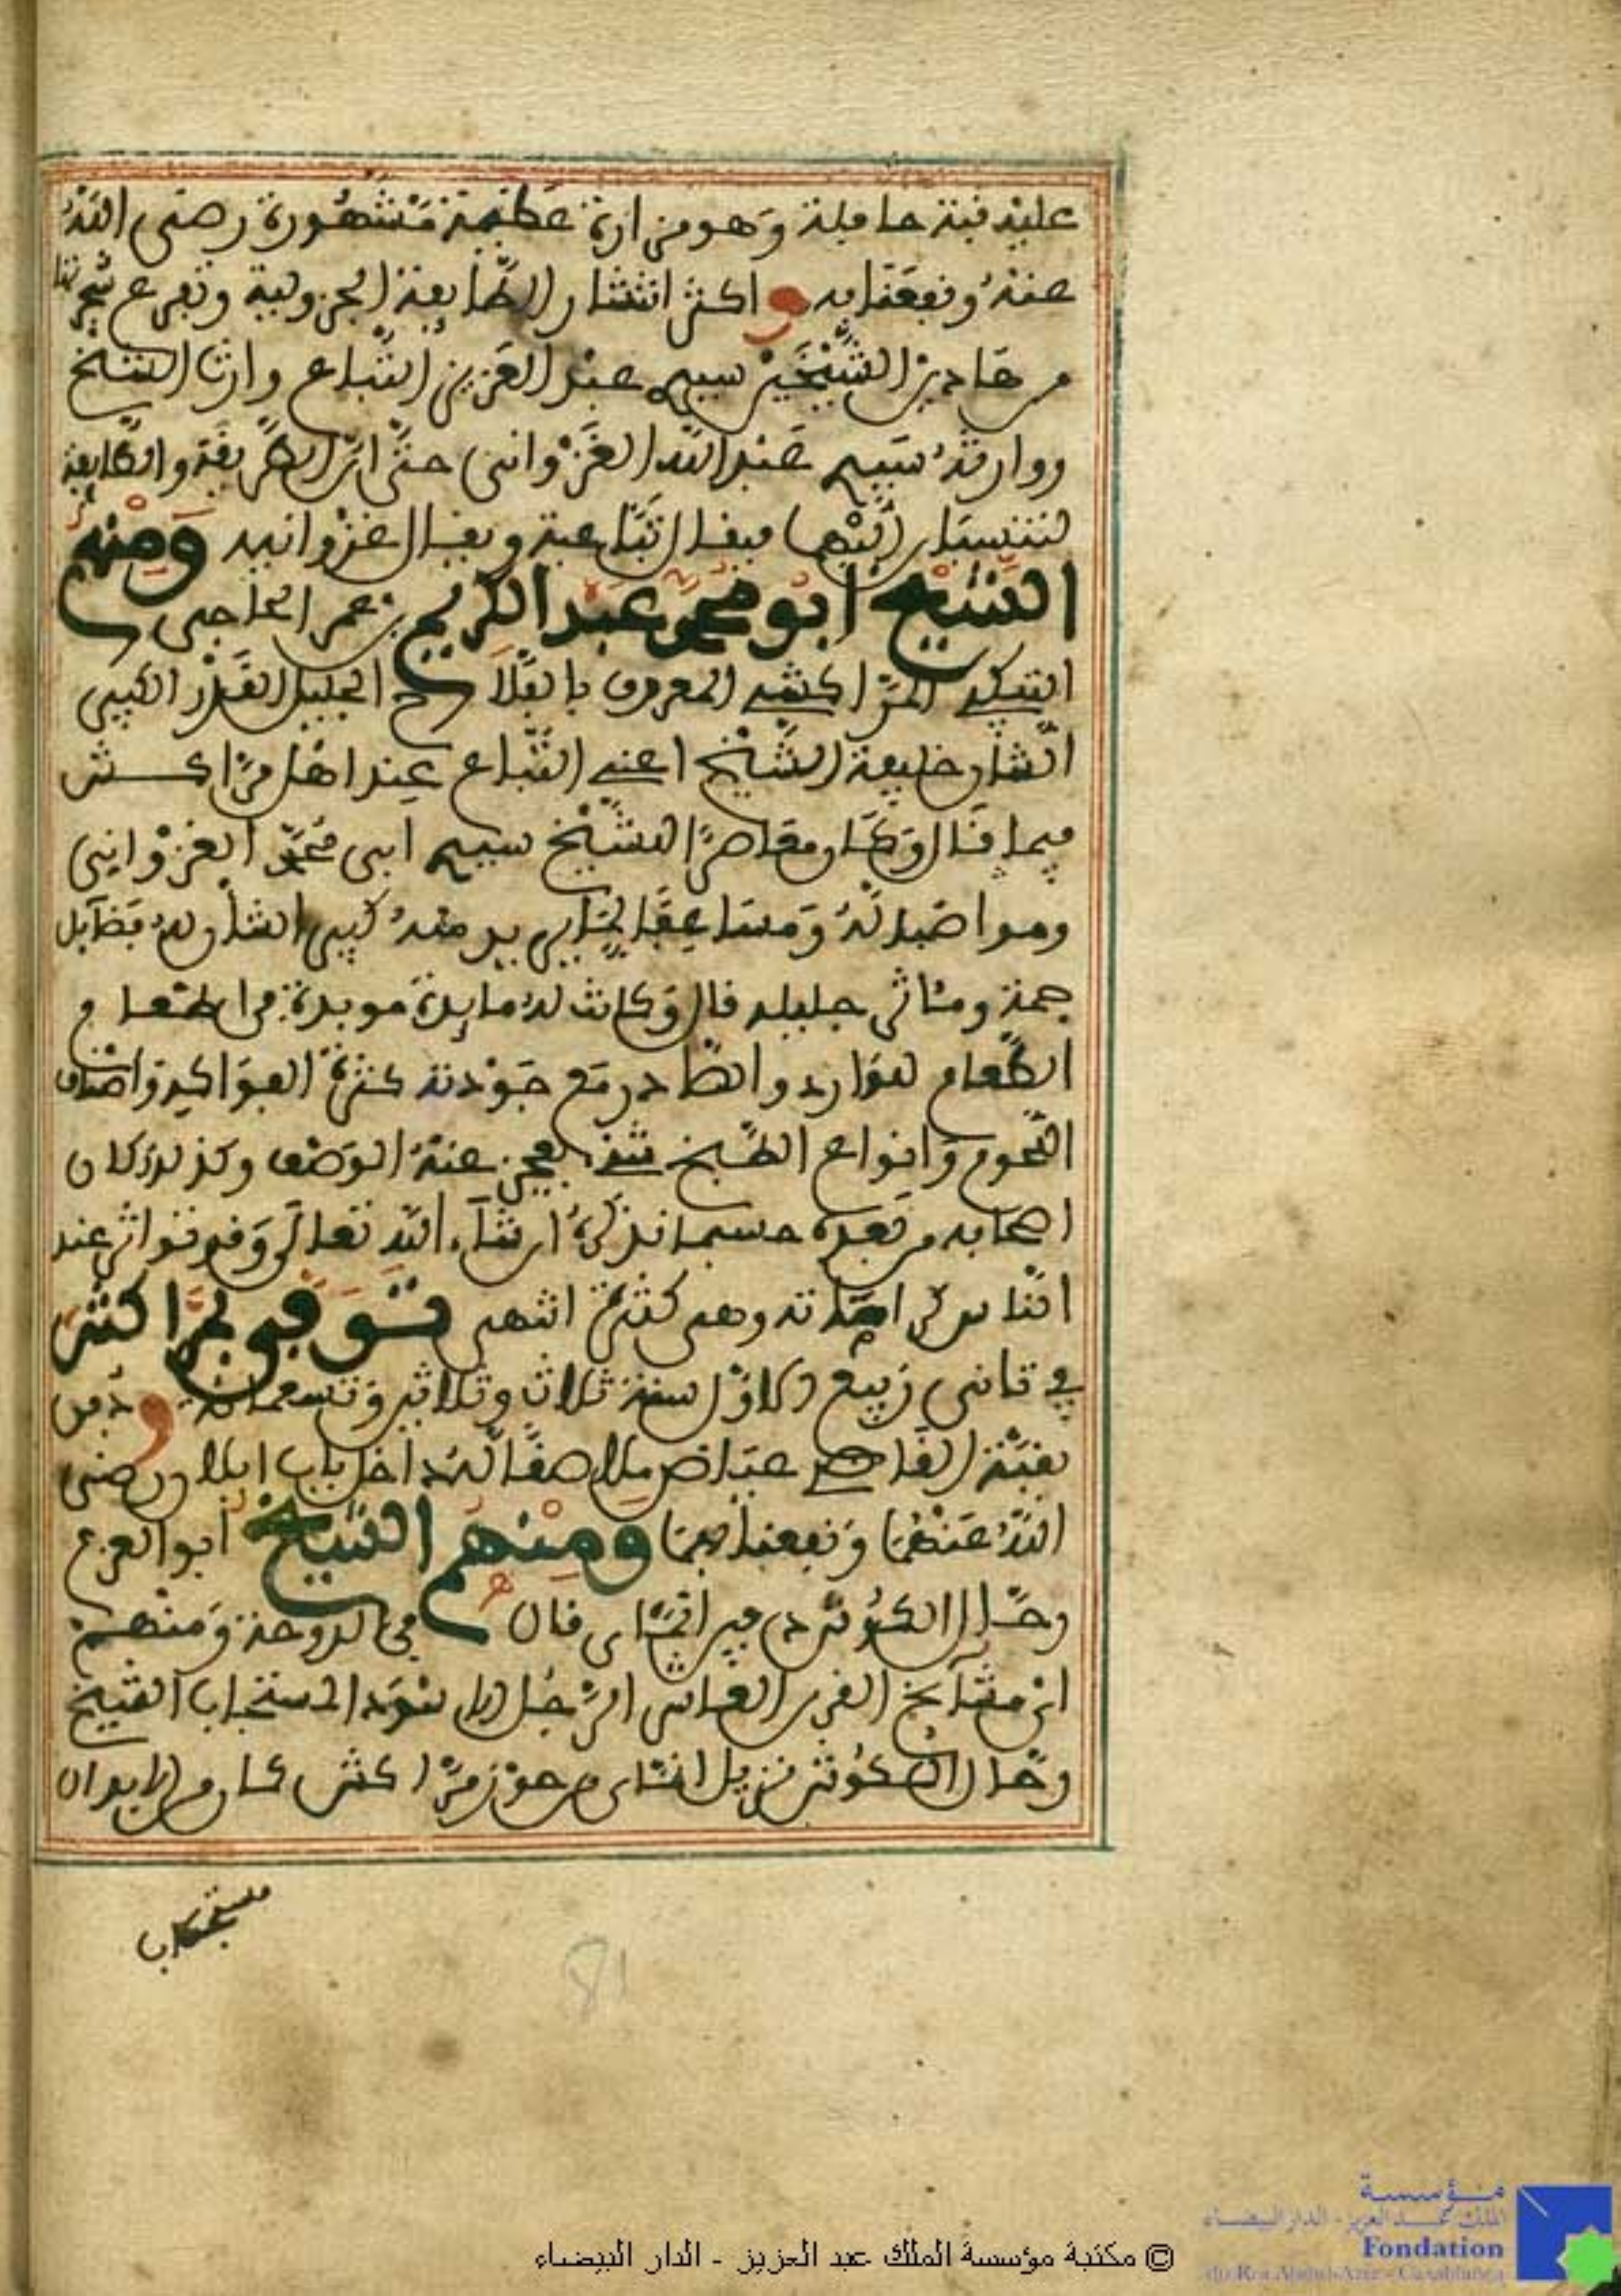 عليه قبة حافلة وهو مزارة عظيمة مشهورة رضي الله
عنه ونفعنا به واكثر انتشار الطايفة الجزولية وتفرع شجرتها
من هاذين الشيخين سيدي عبد العزيز التباع وارث الشيخ
ووارثه سيدي عبد الله الغزواني حتى ان الطريقة والطايفة
لتنسبان اليهما فيقال التباعية ويقال الغزوانية ومنهم
الشيخ ابو محمد عبد الكريم بن عمر الحاحي
المراكشي المعروف بالفلاح الجليل القدر الكبير
الشان خليفة الشيخ اعني التباع عند اهل مراكش
فيما قال وكان معاصرا للشيخ سيدي ابي محمد الغزواني
ومواخيا له كبير الشان له فضايل
جمة ومئاثر جليلة قال وكانت له مايدة موبدة من اطعام
الطعام للوارد والصادر مع جودته كثرة الفواكه واصناف
اللحوم وانواع الطبخ شيء يعجز عنه الوصف وكذلك كان
اصحابه من بعده حسبما نذكره ان شاء الله تعالى وقد تواتر عند
الناس كراماته وهي كثيرة انتهى توفي بمراكش
في ثاني ربيع الاول سنة ثلاث وثلاثين وتسعمائة ودفن
بقبة القاضي عياض ملاصقا له داخل باب ايلان رضي
الله عنهما ونفعنا بهما ومنهم الشيخ ابو العزم
رحال الكوش دفين انماي قال في الدوحة ومنهم
اي مشايخ القرن العاشر الرجل الاسود المستجاب الشيخ
رحال الكوش نزيل انماي من حوز مراكش كان من الابدال
مستجاب
81
© مكتبة مؤسسة الملك عبد العزيز - الدار البيضاء
مؤسسة
الملك عبد العزيز - الدار البيضاء
Fondation
du Roi Abdul-Aziz - Casablanca